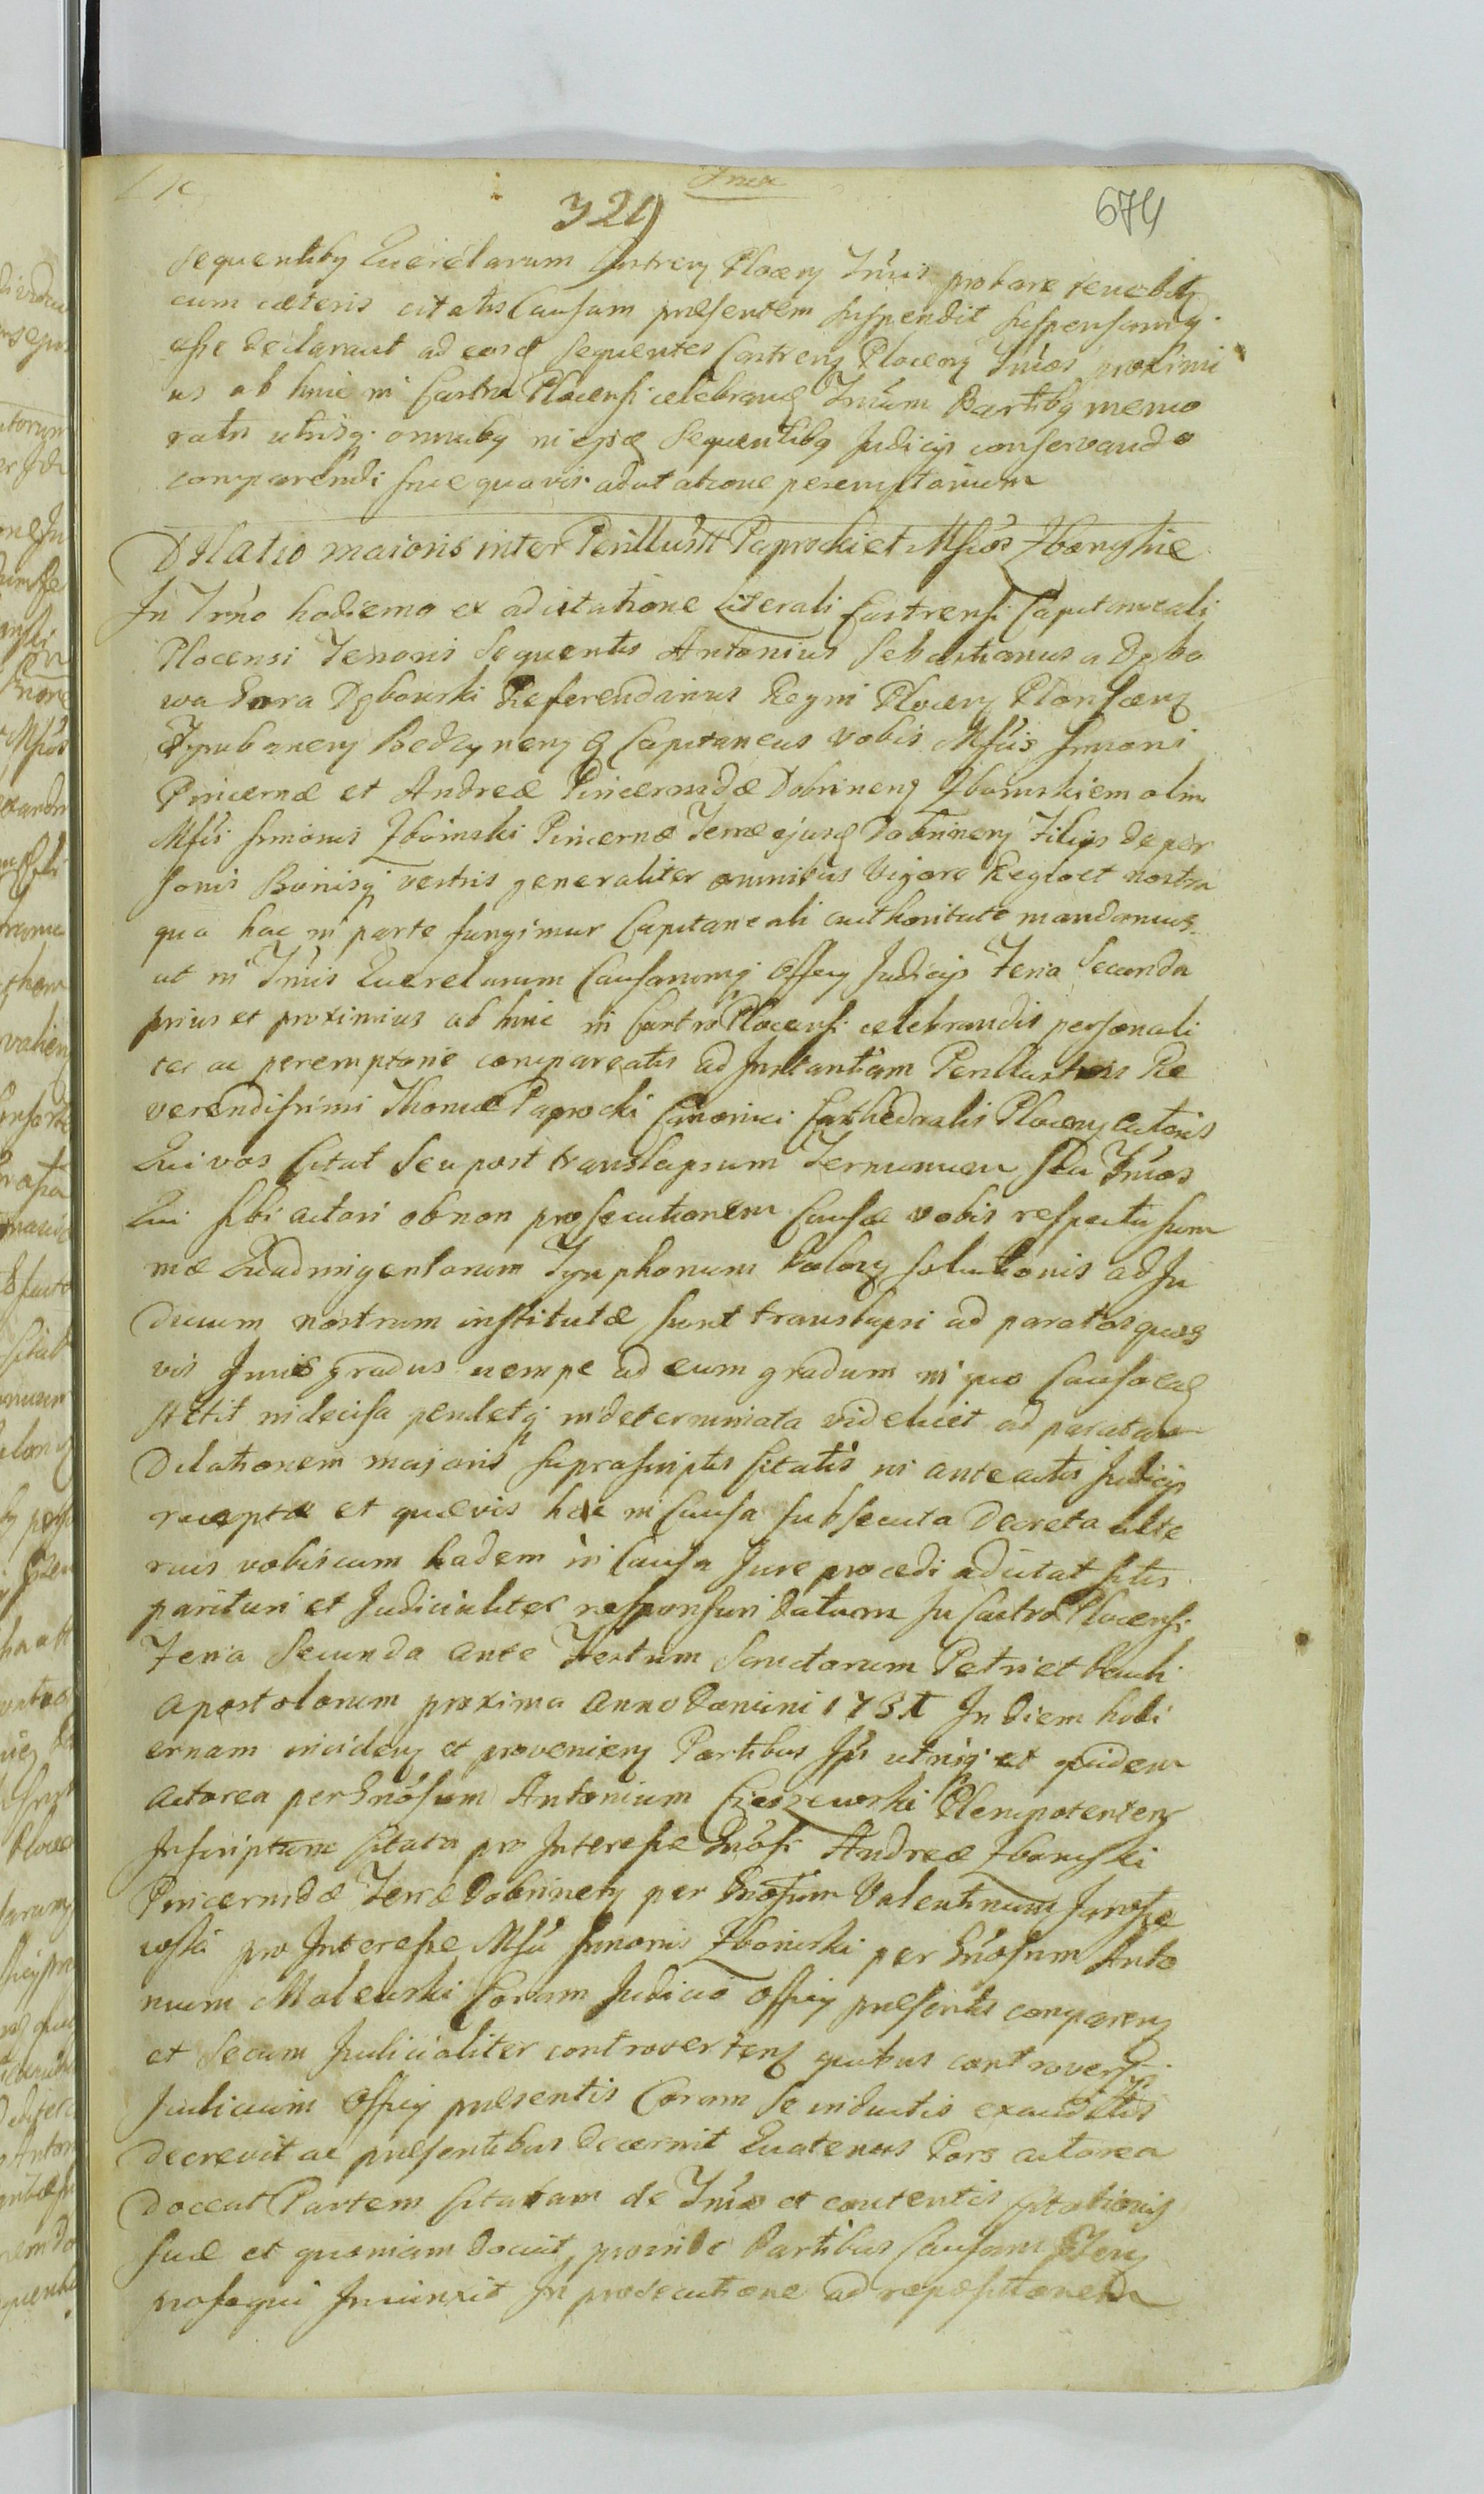 329
674
sequentiby Querelarum Castreñ Ploceñ Tr̃mis probare tenebitẽ
cum cæteris citatis Causam præsentem suspendit suspensamq.
esse declaravit ad eosd̃ sequentes Castreñ Plocens Tr̃mos proximi
us ab hinc in Castro Plocensi celebrand̃ Tr̃mum Partibg memo
ratis utrisq. omnibg in ejsd̃ Sequentibg Judicijs conservando
comparendi sine quavis adcitatione peremptorium
Dilatio maioris inter Perillust̃ Paprocki et Mfĩcos Zboynskie
In Tr̃mo hodierno ex adcitatione literali Castrensi Capitaneali
Plocensi Tenoris Sequentis Antonius Sebastianus a Dębo
wa Gora Dębowski Referendarius Regni Plocens Plonscens
Bedzynens & Capitaneus Vobis Mfĩcis Simoni
Pincernæ et Andreæ Pincernidæ Dobrinens Zboinskiem olim
Mfĩci Simonis Zboinski Pincernæ Terræ ejusd̃ Dobrinens Filijs de per
sonis Bonisq vestris generaliter omnibus Vigore Regia et nostra
qua hac in parte fungimur Capitaneali authoritate mandamus
ut in Tr̃mis Querelarum Causarumq Officij Judicijs Feria Secunda
prius et proximius ab hinc in Castro Plocensi celebrandis personali
ter ac peremptorie compareatis ad Instantiam Perillustris Re
verendissimi Thomæ Paprocki Canonici Cathedralis Plocens Actoris
Qui vos Citat Seu post translapsum Terminum seu Tr̃mos
Qui sibi actori ob non prosecutionem Causæ vobis respectu sum
mæ Quadringentorum Tynphonum solutionis ad Ju
dicium nostrum institutæ sunt translapsi ad paratos quos
vis Juris gradus nempe ad eum gradum in quo Causa ead̃
stetit indecisa pendetq indeterminata videlicet ad paratam
Dilationem majoris suprascriptis Citatis in anteactis Judicijs
receptæ et quævis hac in Causa subsecuta Decreta ulte
rius vobiscum eadem in Causa Jure procedi adcitat sitis
parituri et Judicialiter responsuri Datum In Castro Plocensi
Feria Secunda ante Festum Sanctorum Petri et Pauli
Apostolorum proxima Anno Domini 1731 In diem hodi
ernam incidens et proveniens Partibus Ip̃is utrisq. et quidem
Actorea per Gnõsum Antonium Cieszewski Plenipotentem
Inscriptum Citata pro Interesse Gnõsi Andreæ Zboinski
Pincernidæ Terræ Dobrinens per Gnosum Valentinum
pro Interesse Mfĩci Simonis Zboinski per Gnõsum Anto
nium Malewski Coram Judicio Officij præsentis comparens
et Secum Judicialiter controvertens quibus controversijs
Judicium Officij præsentis Coram Se inductis exauditis
Decrevit ac præsentibus decernit Quatenus Pars actorea
Doceat Partem Citatam de Tr̃mo et contentis Citationis
suæ et quoniam docuit, proinde Partibus Causam
prosequi Injunxit In prosecutione ad repositionem